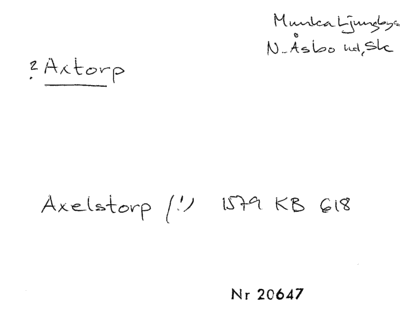 Munka Ljungby s
N. Åsbo hd, Sk
? Axtorp
Axelstorp (!) 1579 KB 618
Nr 20647